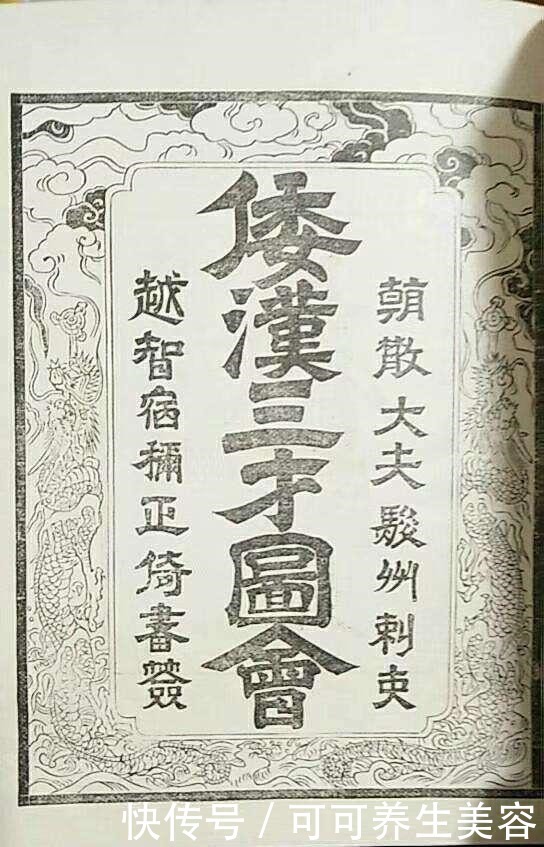 朝散大夫駿州刺史
倭漢三才圖會
越智宿禰正倚書簽
快传号/可可养生美容